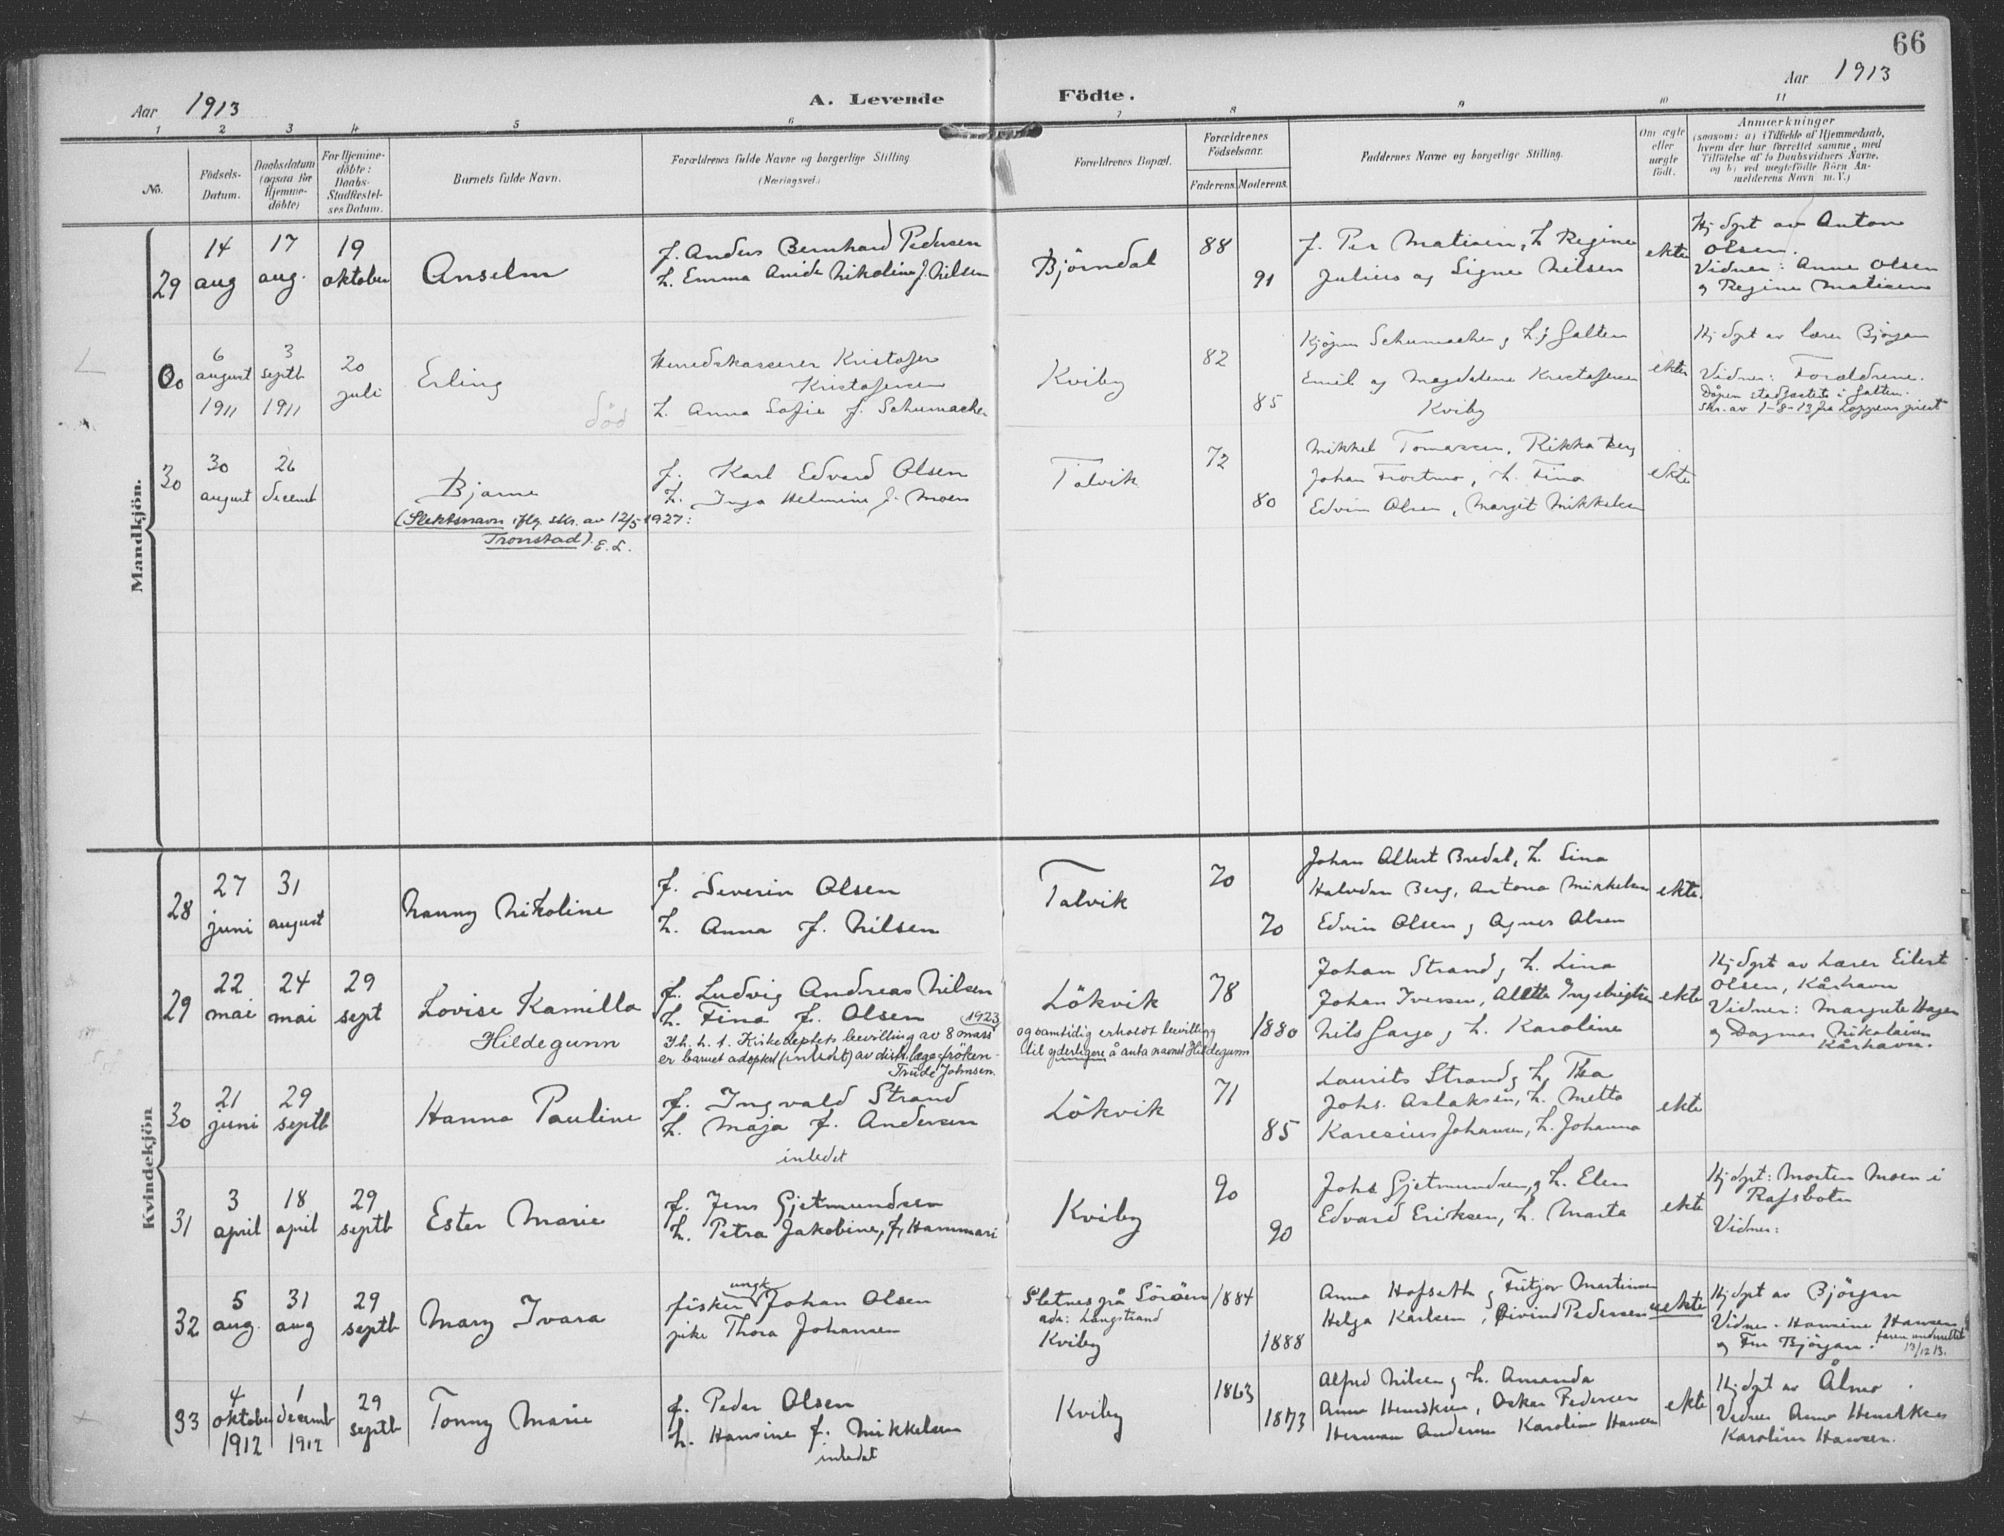 66
Aar 1913
A. Levende Fødte.
Aar 1913
1 2 3 4 5 6 7 8 9 10 11
No.
Födsels-Datum.
Daabsdatum (ogsaa for Hjemme-döbte)
For Hjemme-döbte: Daabs-Stadfæstel-ses Datum.
Barnets fulde Navn.
Forældrenes fulde Navne og borgerlige Stilling
(Næringsvei.)
Forældrenes Bopæl.
Forældrenes Födselsaar.
Faderens. Moderens.
Faddernes Navne og borgerlige Stilling.
Om ægte eller uægte födt.
Anmærkninger
(saasom: a) i Tilfælde af Hjemmedaab,
hvem der har forrettet samme, med
Tilföielse af to Daabsvidners Navne,
og b) ved uegtefödte Börn An-
melderens Navn m. V.)
Mandkjön.
29
14 aug
17 aug.
19 oktober
Anselm
f. Anders Bernhard Pedersen
h. Emma Anide Nikoline f. Nilsen
Björndal
88
91
f. Per Matisen, h. Regine
Julius og Signe Nilsen
ekte
Hj dpt av Anton
Olsen.
Vidner: Anne Olsen
og Regine Matisen
L
6 august 1911
3 septb 1911
20 juli
Erling
död
Herredskasserer Kristofer
Kristofersen
h. Anna Sofie f. Schumacher
Kviby
82
85
Kjögn Schumacher og h. j Galten
Emil og Magdalene Kristofersen
Kviby
ekte
Hj dpt av lærer Björgan
Vidner: Forældrene.
Dåpen stadfæstet i Galten.
skr. av 1-8-13 fra Loppens prest
30
30 august
26 decemb
Bjarne
(Slektsnavn iflg. skr. av 12/5 1927:
Tronstad). E. L.
f. Karl Edvard Olsen
h. Inga Helmine f. Moen
Talvik
72
80
Mikkel Tomassen, Rikka Berg
Johan , h. Fina
Edvin Olsen, Margit Mikkelsen
ekte
Kvindekjön
28
27 juni
31 august
Nanny Nikoline
f. Severin Olsen
h. Anna f. Nilsen
Talvik
70
70
Johan Albert Bredal, h. Lina
Halvdan Berg, Antona Mikkelsen
Edvin Olsen og Agnes Olsen
ekte.
29
22 mai
24 mai
29 sept
Lovise Kamilla
Hildegunn
f. Ludvig Andreas Nilsen
h. Fina f. Olsen
1923
Th. h. t. Kirkedeptets bevilling av 8 mars
er barnet adoptert (inledet) av distr.læge fröken
Trude Johnsen.
Lökvik
og samtidig erholdt bevilling
til yderligere å anta navnet Hildegunn
78
1880
Johan Strand og h. Lina
Johan Iversen, Alette Ingebrigtsen
Nils Gargo og h. Karoline
ekte
Hj dpt av Lærer Eilert
Olsen, Kårhavn
Vidner: Margrete Hagen
og Dagmar Nikolaisen
Kårhavn.
30
21 juni
29 septb
Hanna Pauline
f. Ingvald Strand
h. Maja f. Andersen
inledet
Lökvik
71
85
Laurits Strand og h. Thea
Johs. Aslaksen, h. Metta
Karesius Johansen, h. Johanna
ekte
31
3 april
18 april
29 septb
Ester Marie
f. Jens Gjetmundsen
h. Petra Jakobine, f. Hammari
Kviby
90
90
Johs Gjetmundsen, og h. Elen
Edvard Eriksen, h. Marta
ekte
Hj dpt: Morten Moen i
Rafsboten
Vidner:
32
5 aug.
31 aug
29 septb
Mary Ivara
ungk
fisker Johan Olsen
pike Thora Johansen
Sletnes på Söröen
adr: Langstrand
Kviby
1884
1888
Anna Hofseth og Fritjov Martinsen
Helga Karlsen, Öivind Pedersen
uekte
Hj dpt av Björgan
Vidner: Hansine Hansen
og Fru Björgan.
faren underrettet
13/12 13.
33
4 oktober 1912
1 decemb 1912
29 septb
Tonny Marie
f. Peder Olsen
h. Hansine f. Mikkelsen
inledet
Kviby
1863
1873
Alfred Nilsen og h. Amanda
Anna Henriksen, Oskar Pedersen
Herman Andersen Karoline Hansen
ekte
Hj dpt av Ålmo
Vidner Anna Henriksen
Karoline Hansen.